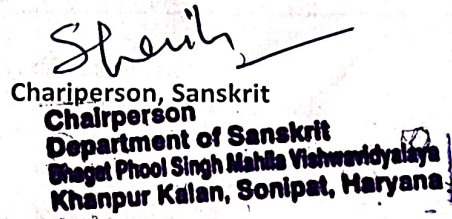 Chariperson, Sanskrit
Chairperson
Department of Sanskrit
Bhagat Phool Singh Mahila Vishwavidyalaya
Khanpur Kalan, Sonipat, Haryana